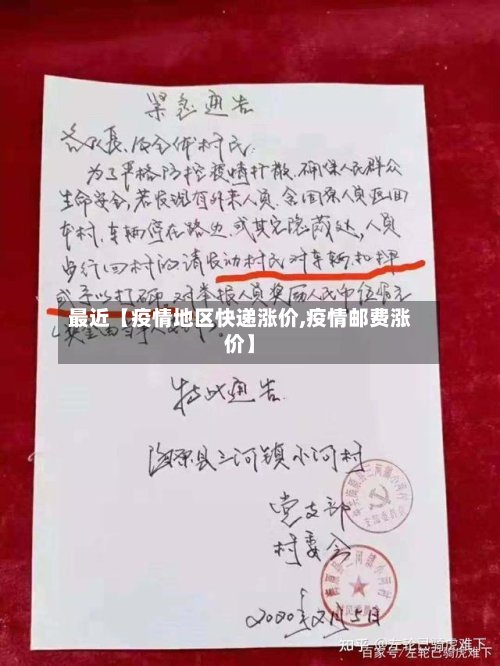 紧急通告
各队长、及全体村民:
为了严格防控疫情扩散,确保人民群众
生命安全,若发现有外来人员、全国人员返回
本村,车辆停在路边,或其它隐蔽处,人员
自行回村的请发动村民对车辆扣押
或予以打砸,对举报人员奖励人民币伍佰元
最近【疫情地区快递涨价,疫情邮费涨
价】
特此通告
海原县三河镇小河村
党支部
村委会
2020年2月5日
知乎 @左轮已骑虎难下
百家号/左轮已骑虎难下